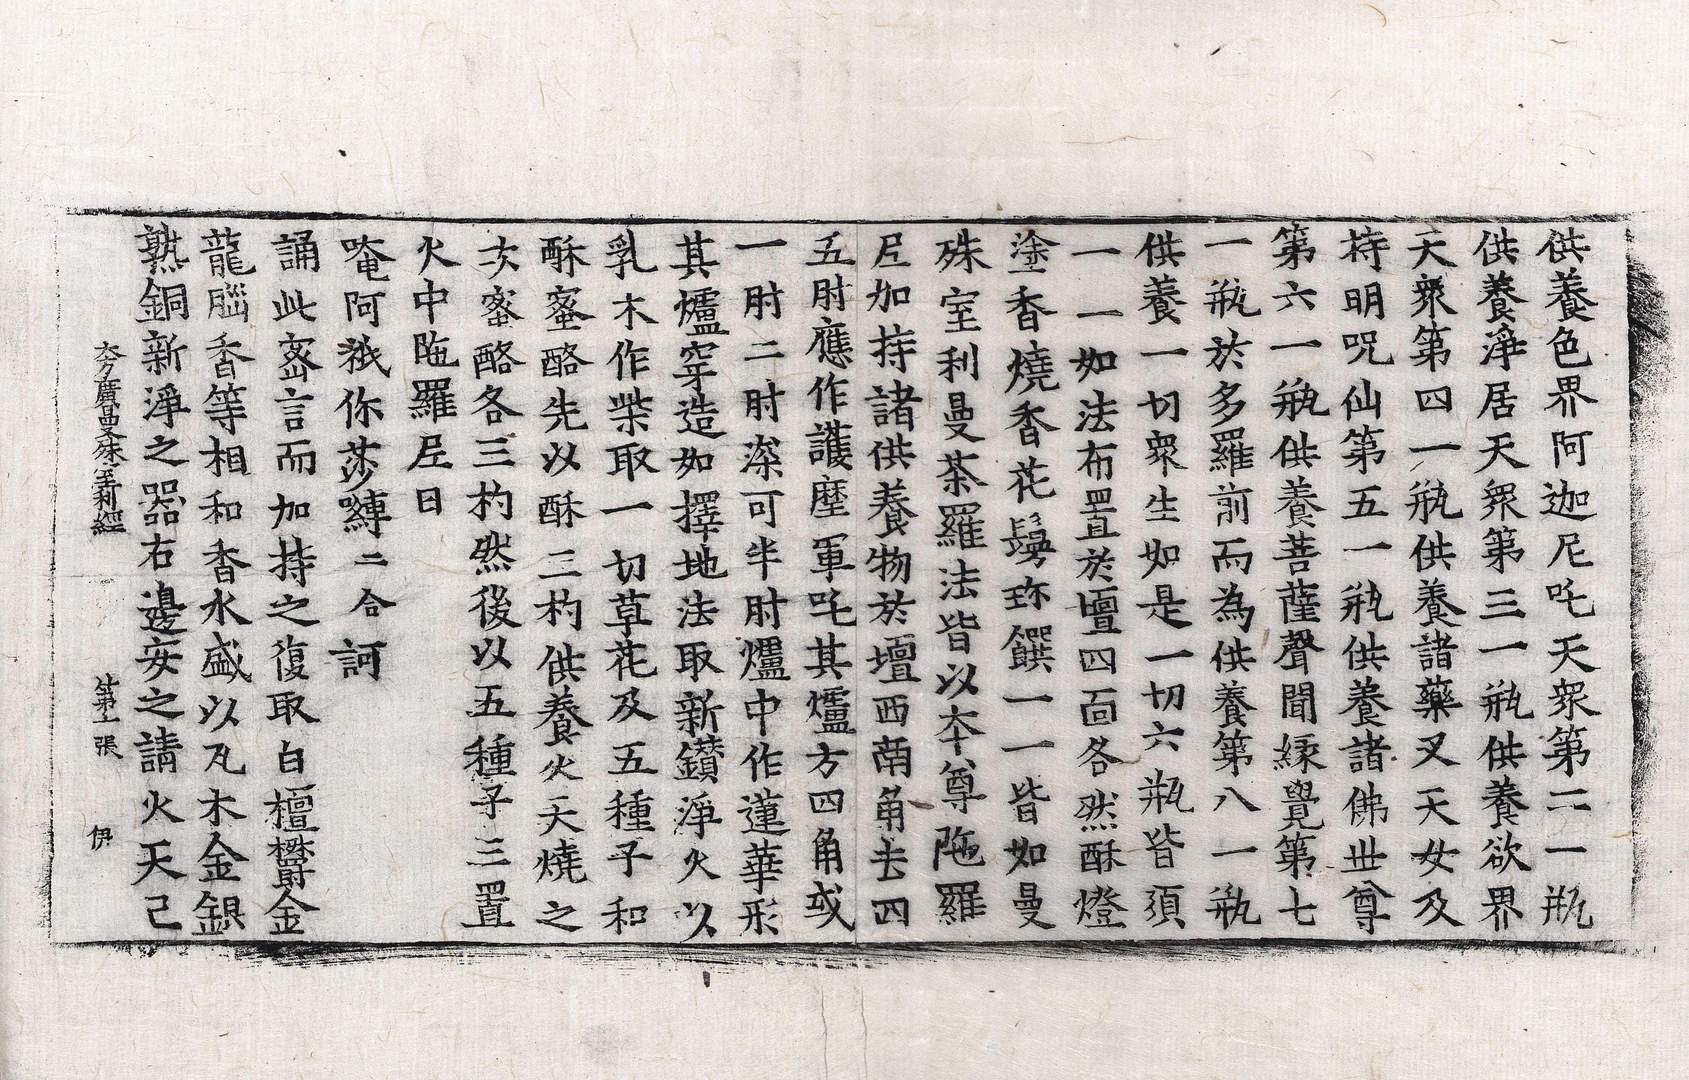 供養色界阿迦尼吒天衆第二一瓶
供養淨居天衆第三一瓶供養欲界
天衆第四一瓶供養諸藥叉天女及
持明呪仙第五一瓶供養諸佛世尊
第六一瓶供養菩薩聲聞縁覺第七
一瓶於多羅前而為供養第八一瓶
供養一切衆生如是一切六瓶皆須
一一如法布置於壇四面各然酥燈
塗香燒香花鬘珎饌一一皆如曼
殊室利曼荼羅法皆以夲尊陁羅
𡰱加持諸供養物於壇西南角去四
五肘應作護摩軍吒其爐方四角或
一肘二肘深可半肘爐中作蓮華形
其爐穿造如擇地法取新鑚淨火以
乳木作柴取一切草花及五種子和
酥蜜酪先以酥三杓供養火天燒之
次蜜酪各三杓然後以五種子三置
火中陁羅𡰱曰
唵阿祇你莎嚩二合訶
誦此密言而加持之復取白檀欝金
龍腦香等相和香水盛以瓦木金銀
熟銅新淨之器右邊安之請火天已
大方廣曼殊室利經　第十一張　伊